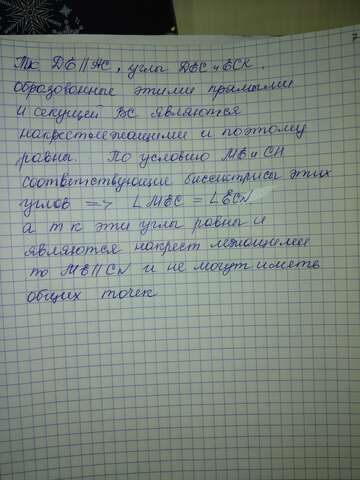 Тк DE || АС, углы DEC и ECK,
образованные этими прямыми
и секущей ВС являются
накрестлежащими и поэтому
равны. По условию МЕ и СН
соответствующие биссектрисы этих
углов => ∠MEC = ∠ECN
а т к эти углы равны и
являются накрест лежащимее
то ME || CN и не могут иметь
общих точек
7